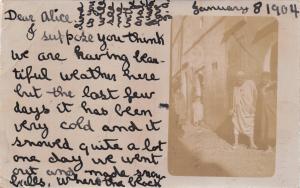 January 8 1904
Dear Alice
I suppose you think
we are having beau-
tiful weather here
but the last few
days it has been
very cold and it
snowed quite a lot
one day we went
out and made snow
balls, where the block